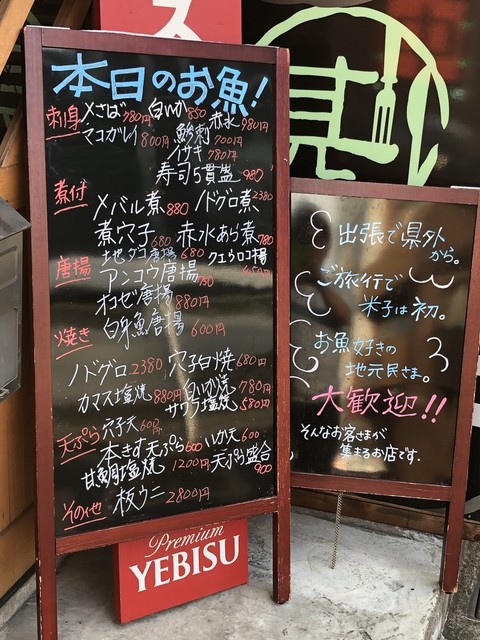 本日のお魚!
刺身 〆さば780円 白いか850 赤水980円
マコガレイ800円 鯵刺700円
イサキ780円
寿司5貫盛980
煮付
メバル煮880 ノドグロ煮2380
煮穴子680 赤水あら煮780
唐揚 地ダコ唐揚680 クエウロコ揚450円
アンコウ唐揚750
オコゼ唐揚880円
白身魚唐揚600円
焼き
ノドグロ2380 穴子白焼680円
カマス塩焼880円 白いか焼780円
サワラ塩焼580円
天ぷら 穴子天600円
本きす天ぷら600 いか天600
甘鯛塩焼1200円 天ぷら盛合900
その他 板ウニ2800円
Premium
YEBISU
出張で県外から。
ご旅行で
米子は初。
お魚好きの
地元民さま。
大歓迎!!
そんなお客さまが
集まるお店です。